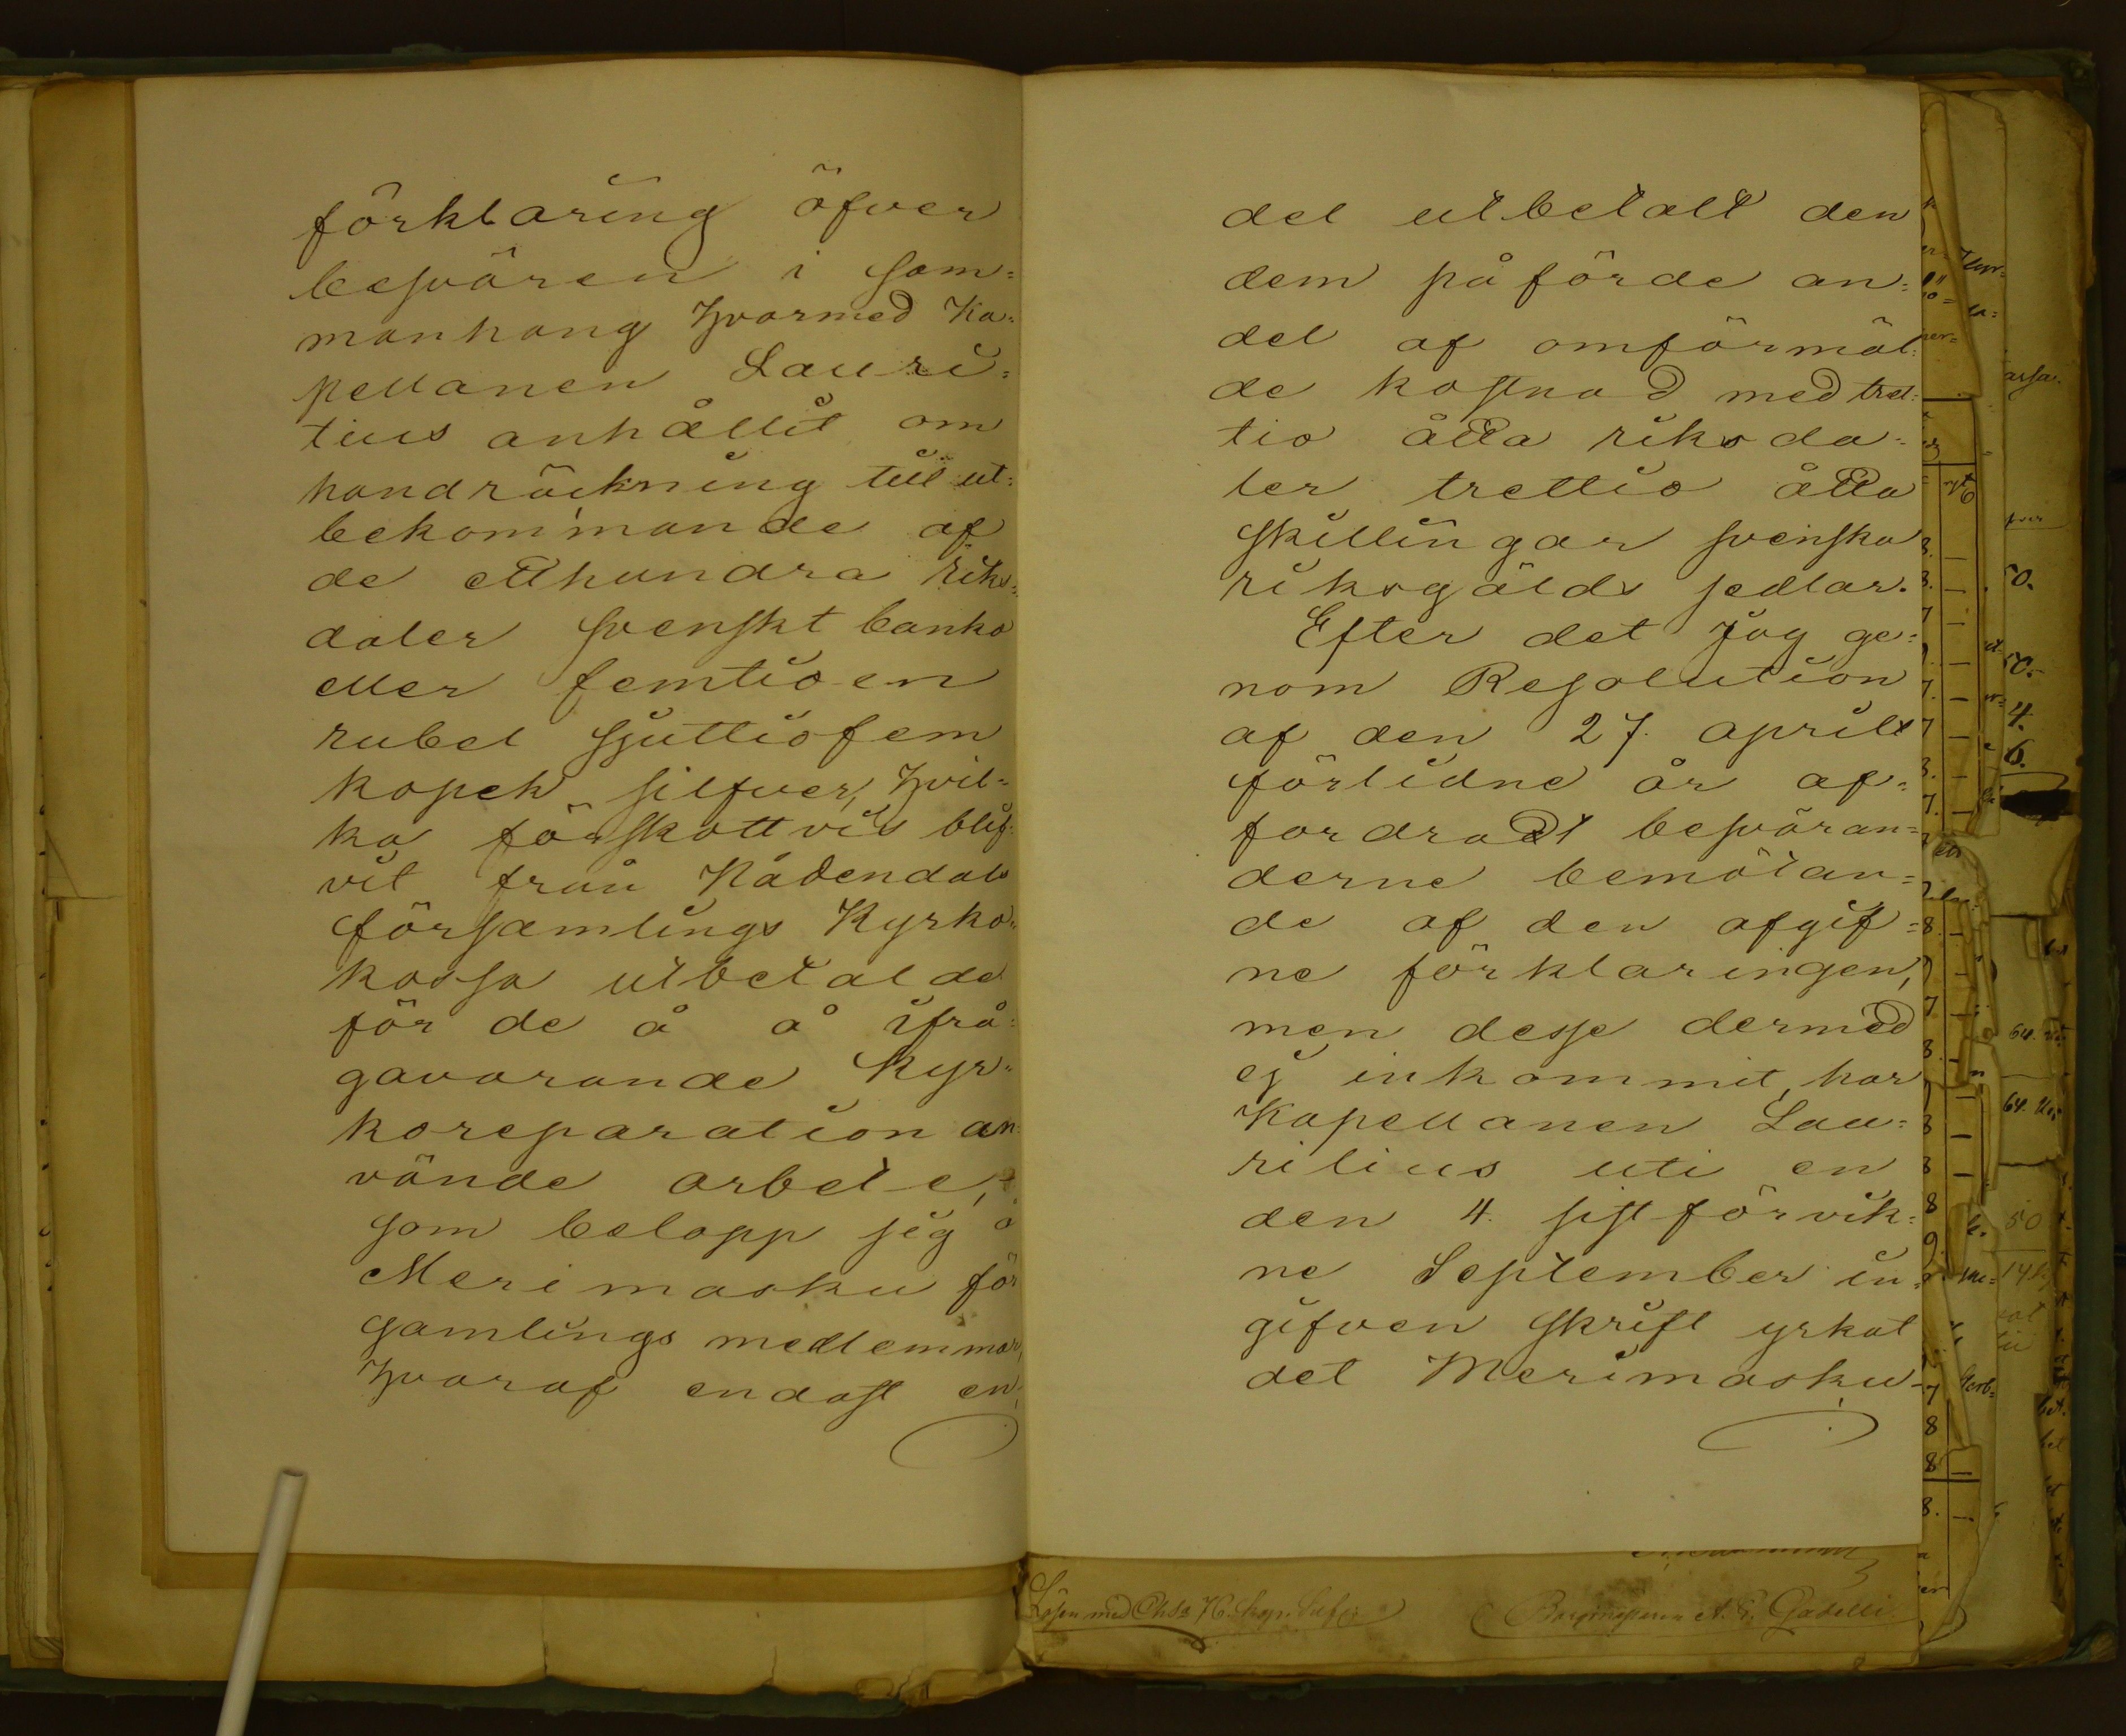 förklaring öfver
besvären i sam=
manhang hvarmed Ka=
pellanen Lauri=
tius anhållit om
handräckning till ut=
bekommande af
de etthundra riks=
daler svenskt banko
eller femtioen
rubel sjuttiofem
kopek silfver, hvil=
ka förskottvis blif=
vit från Nådendals
församlings Kyrko=
kassa utbetalde
för de å å ifrå=
gavarande Kyr=
koreparation an=
vände arbete,
som belopp sig å
Merimasku för
samlings medlemmar,
hvaraf endast en
del utbetalt den
dem påförde an=
del af omförmäl=
de kostnad med tret=
tio åtta riksda=
ler trettio åtta
skillingar svenska
riksgälds sedlar.
Efter det Jag ge=
nom Resolution
af den 27. april
förlidne år af=
fordradt besväran=
derne bemötan=
de af den afgif=
ne förklaringen,
men desse dermed
ej inkommit, har
Kapellanen Lau=
ritius uti en
den 4. sist förvik=
ne September in=
gifven skrift yrkat
det Merimasku
Lösen med
A. G. Gadelli